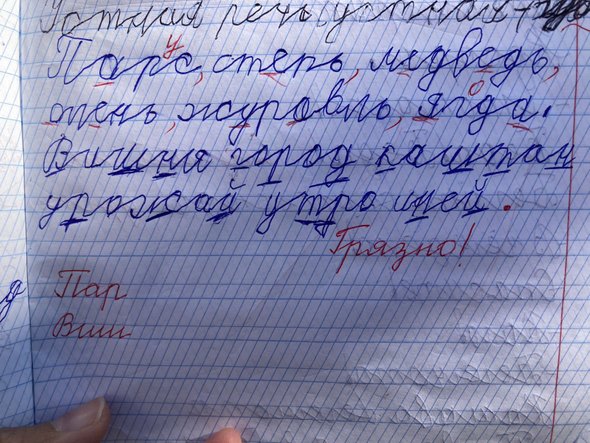 Устная речь (устная
Парус, степь, медведь,
тень, журовль, ягода.
Вишня город каштан
урожай утро иней.
Грязно!
Пар
Виш